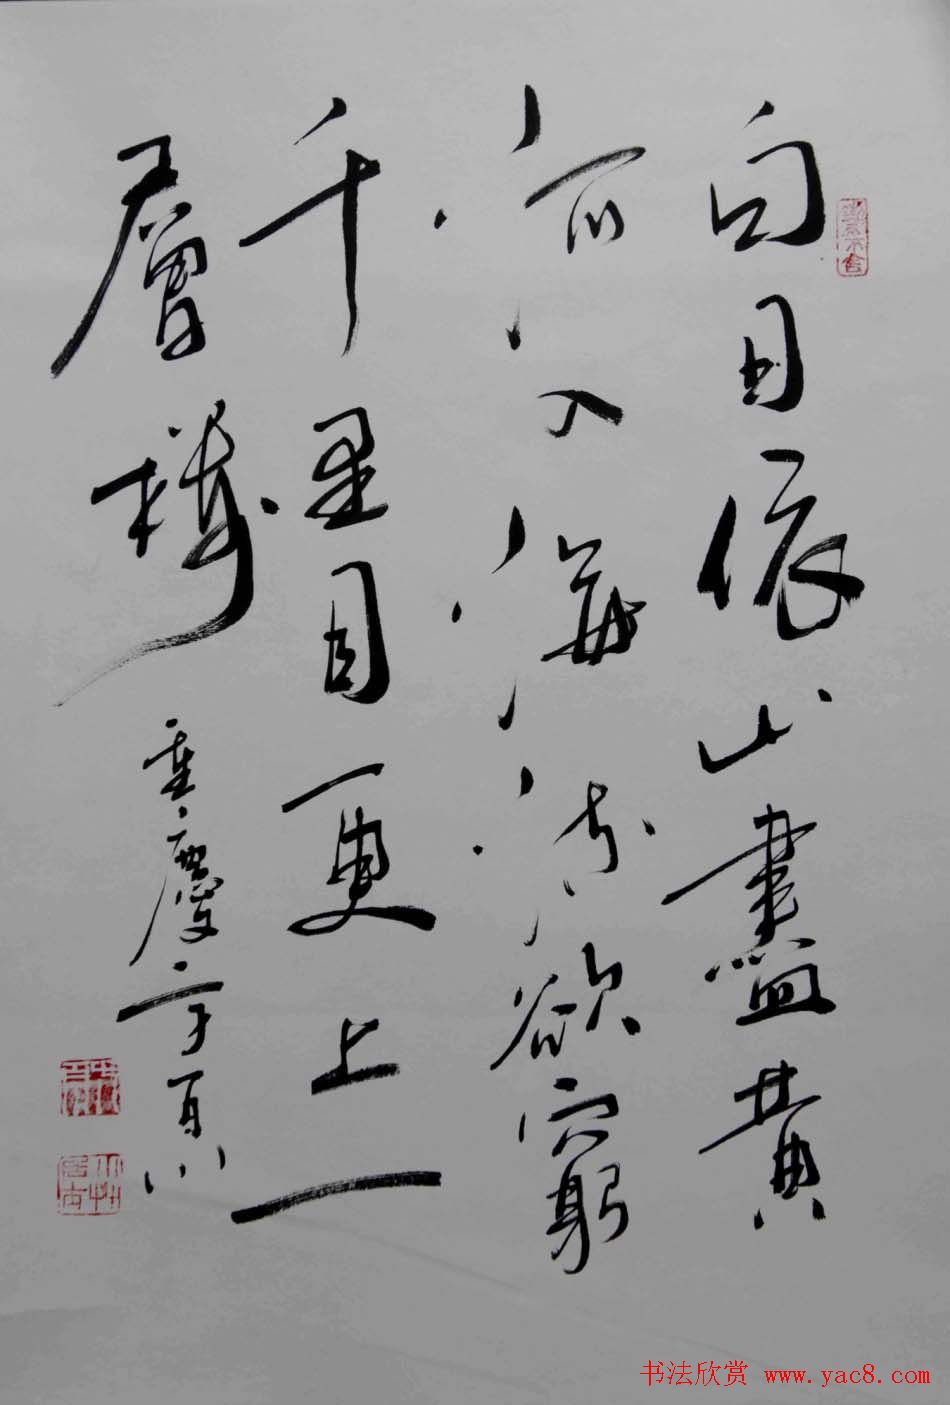 白日依山盡黄
河入海流欲窮
千里目更上一
層樓
重慶 百川
书法欣赏 www.yac8.com